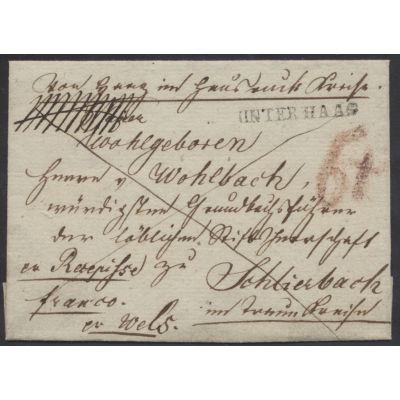 Von Haag im Hausruck Kreise.
UNTERHAAG
Wohlgeboren
Herrn v Wohlbach,
würdigsten Grundbuchsführer
der löblichen Stiftsherrschaft
zu
Schlierbach
franco.
im Traun Kreise
er Wels.